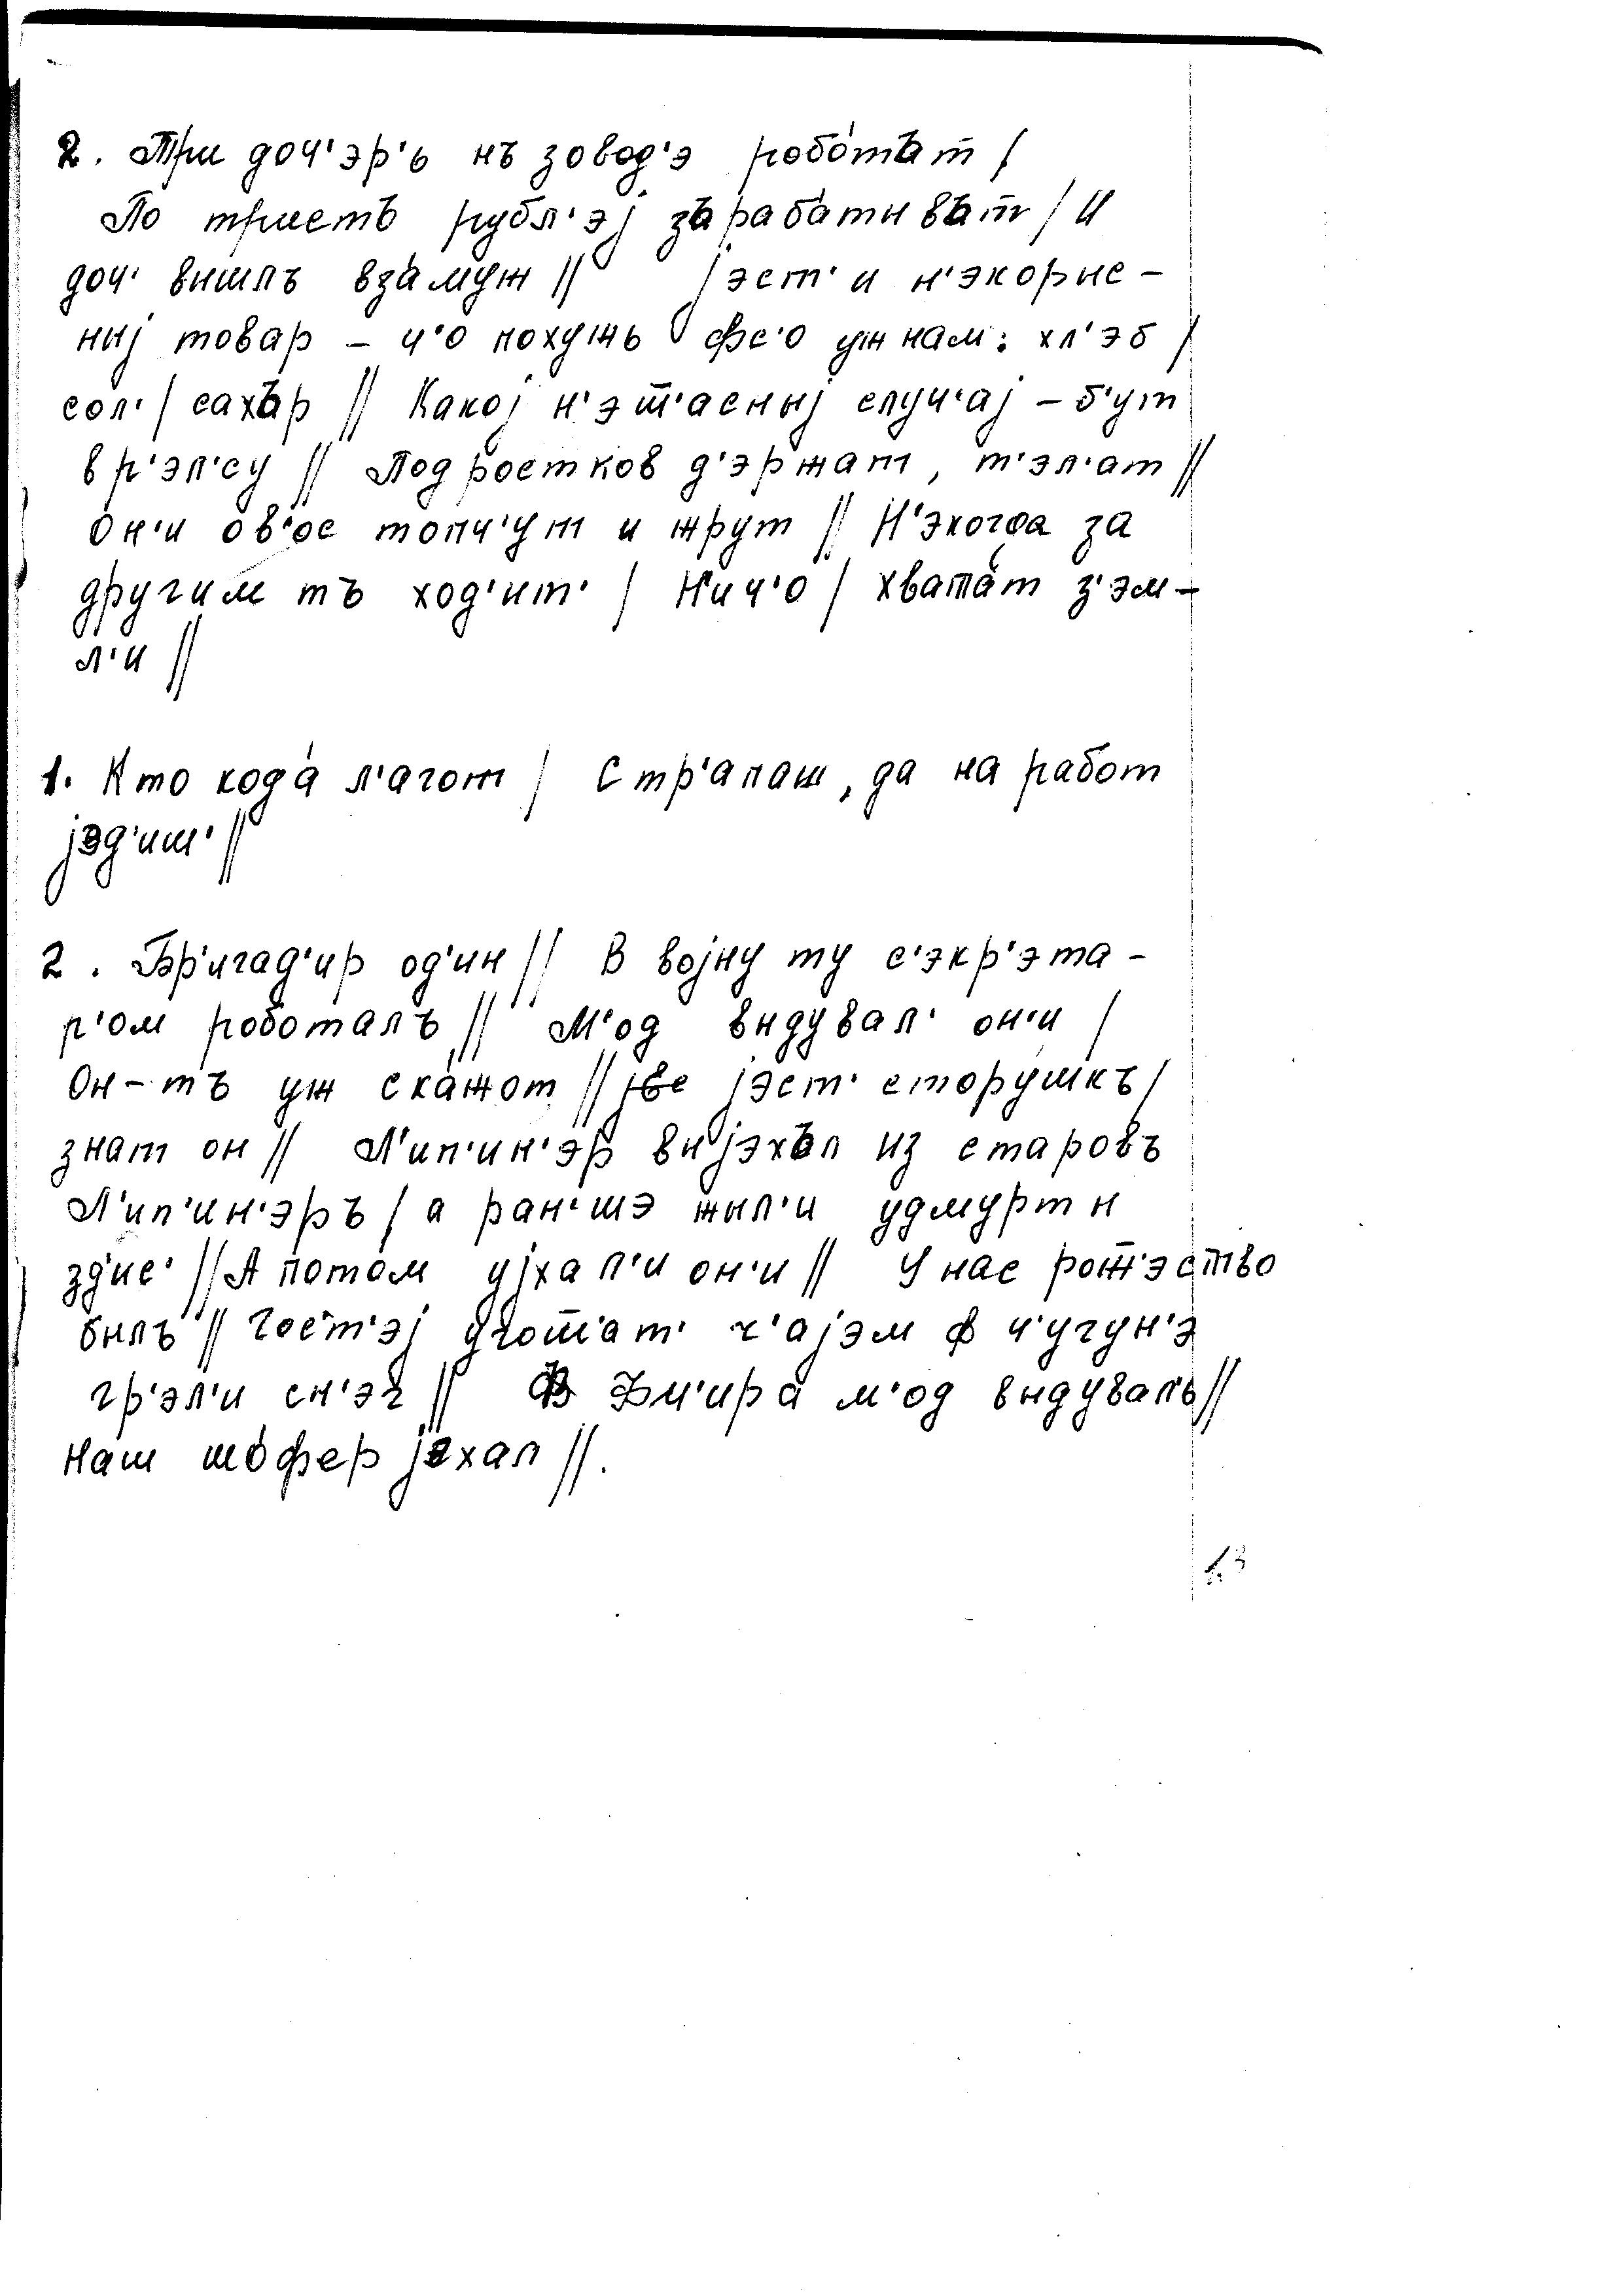 2. Три доч'эр'ь нъ зовод'э робо́тът /
По тристъ рубл'эј зърабо́тывът / И
доч' вышлъ вза́муж // јэст' и н'экорыс-
ныј товар – ч'о похужь фс'о уж нам: хл'эб /
сол' / сахър // Какој н'эш'асныј случ'ај – б'ут
в р'эл'су // Подростков д'эржат, т'эл'ат //
Он'и ов'ос топч'ут и жрут // Н'экогда за
другим тъ ход'ит' / Нич'о / хвата́т з'эм-
л'и //
1. Кто кода́ л'агот / Стр'апаш, да на работ
јэд'иш' //
2. Бр'игад'ир од'ин // В војну ту с'экр'эта-
р'ом роботалъ // М'од выдувал' он'и /
Он-тъ уж ска́жот // јэст' стору́шкъ /
знат он // Л'ип'ин'эр выјэхъл из старовъ
Л'ип'ин'эръ / а ран'шэ жыл'и удмурты
зд'ис' // А пото́м ујхал'и он'и // У нас рож'эство
былъ // Гост'эј угош'ат' ч'ајэм ф ч'угун'э
гр'эл'и сн'эг // м'од выдувалъ //
Наш шо́фер јехал //.